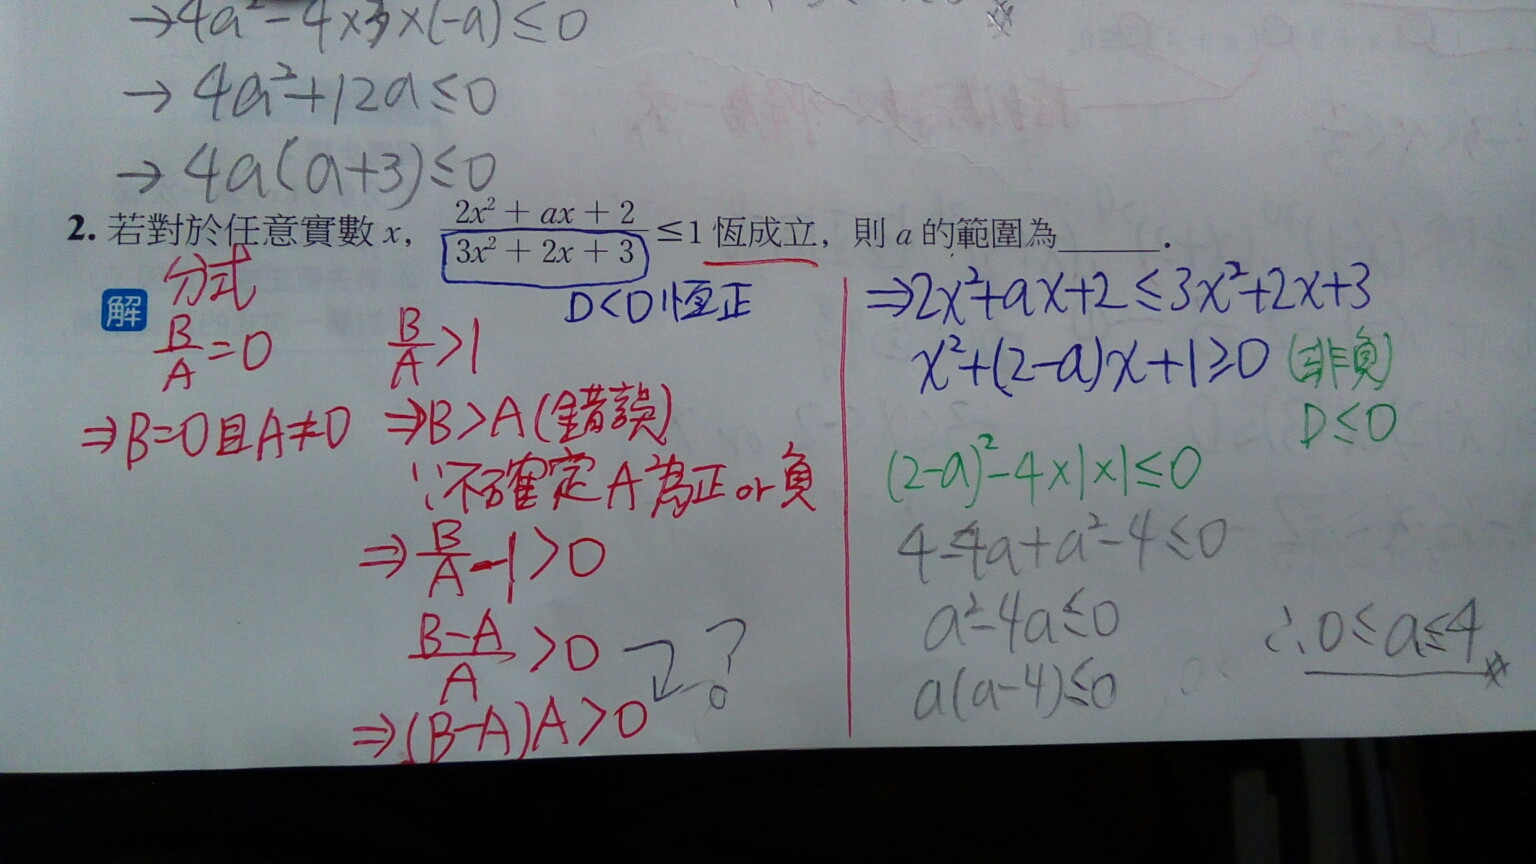 →4a²-4×3×(-a)≤0
→4a²+12a≤0
→4a(a+3)≤0
2. 若對於任意實數 x, (2x² + ax + 2)/(3x² + 2x + 3) ≤1 恆成立, 則 a 的範圍為______.
解
分式
B/A=0
⇒B=0且A≠0
D<0 恆正
B/A>1
⇒B>A(錯誤)
∵不確定A為正or負
⇒B/A-1>0
(B-A)/A>0 ?
⇒(B-A)A>0
⇒2x²+ax+2≤3x²+2x+3
x²+(2-a)x+1≥0 (非負)
D≤0
(2-a)²-4×1×1≤0
4-4a+a²-4≤0
a²-4a≤0
a(a-4)≤0
∴0≤a≤4